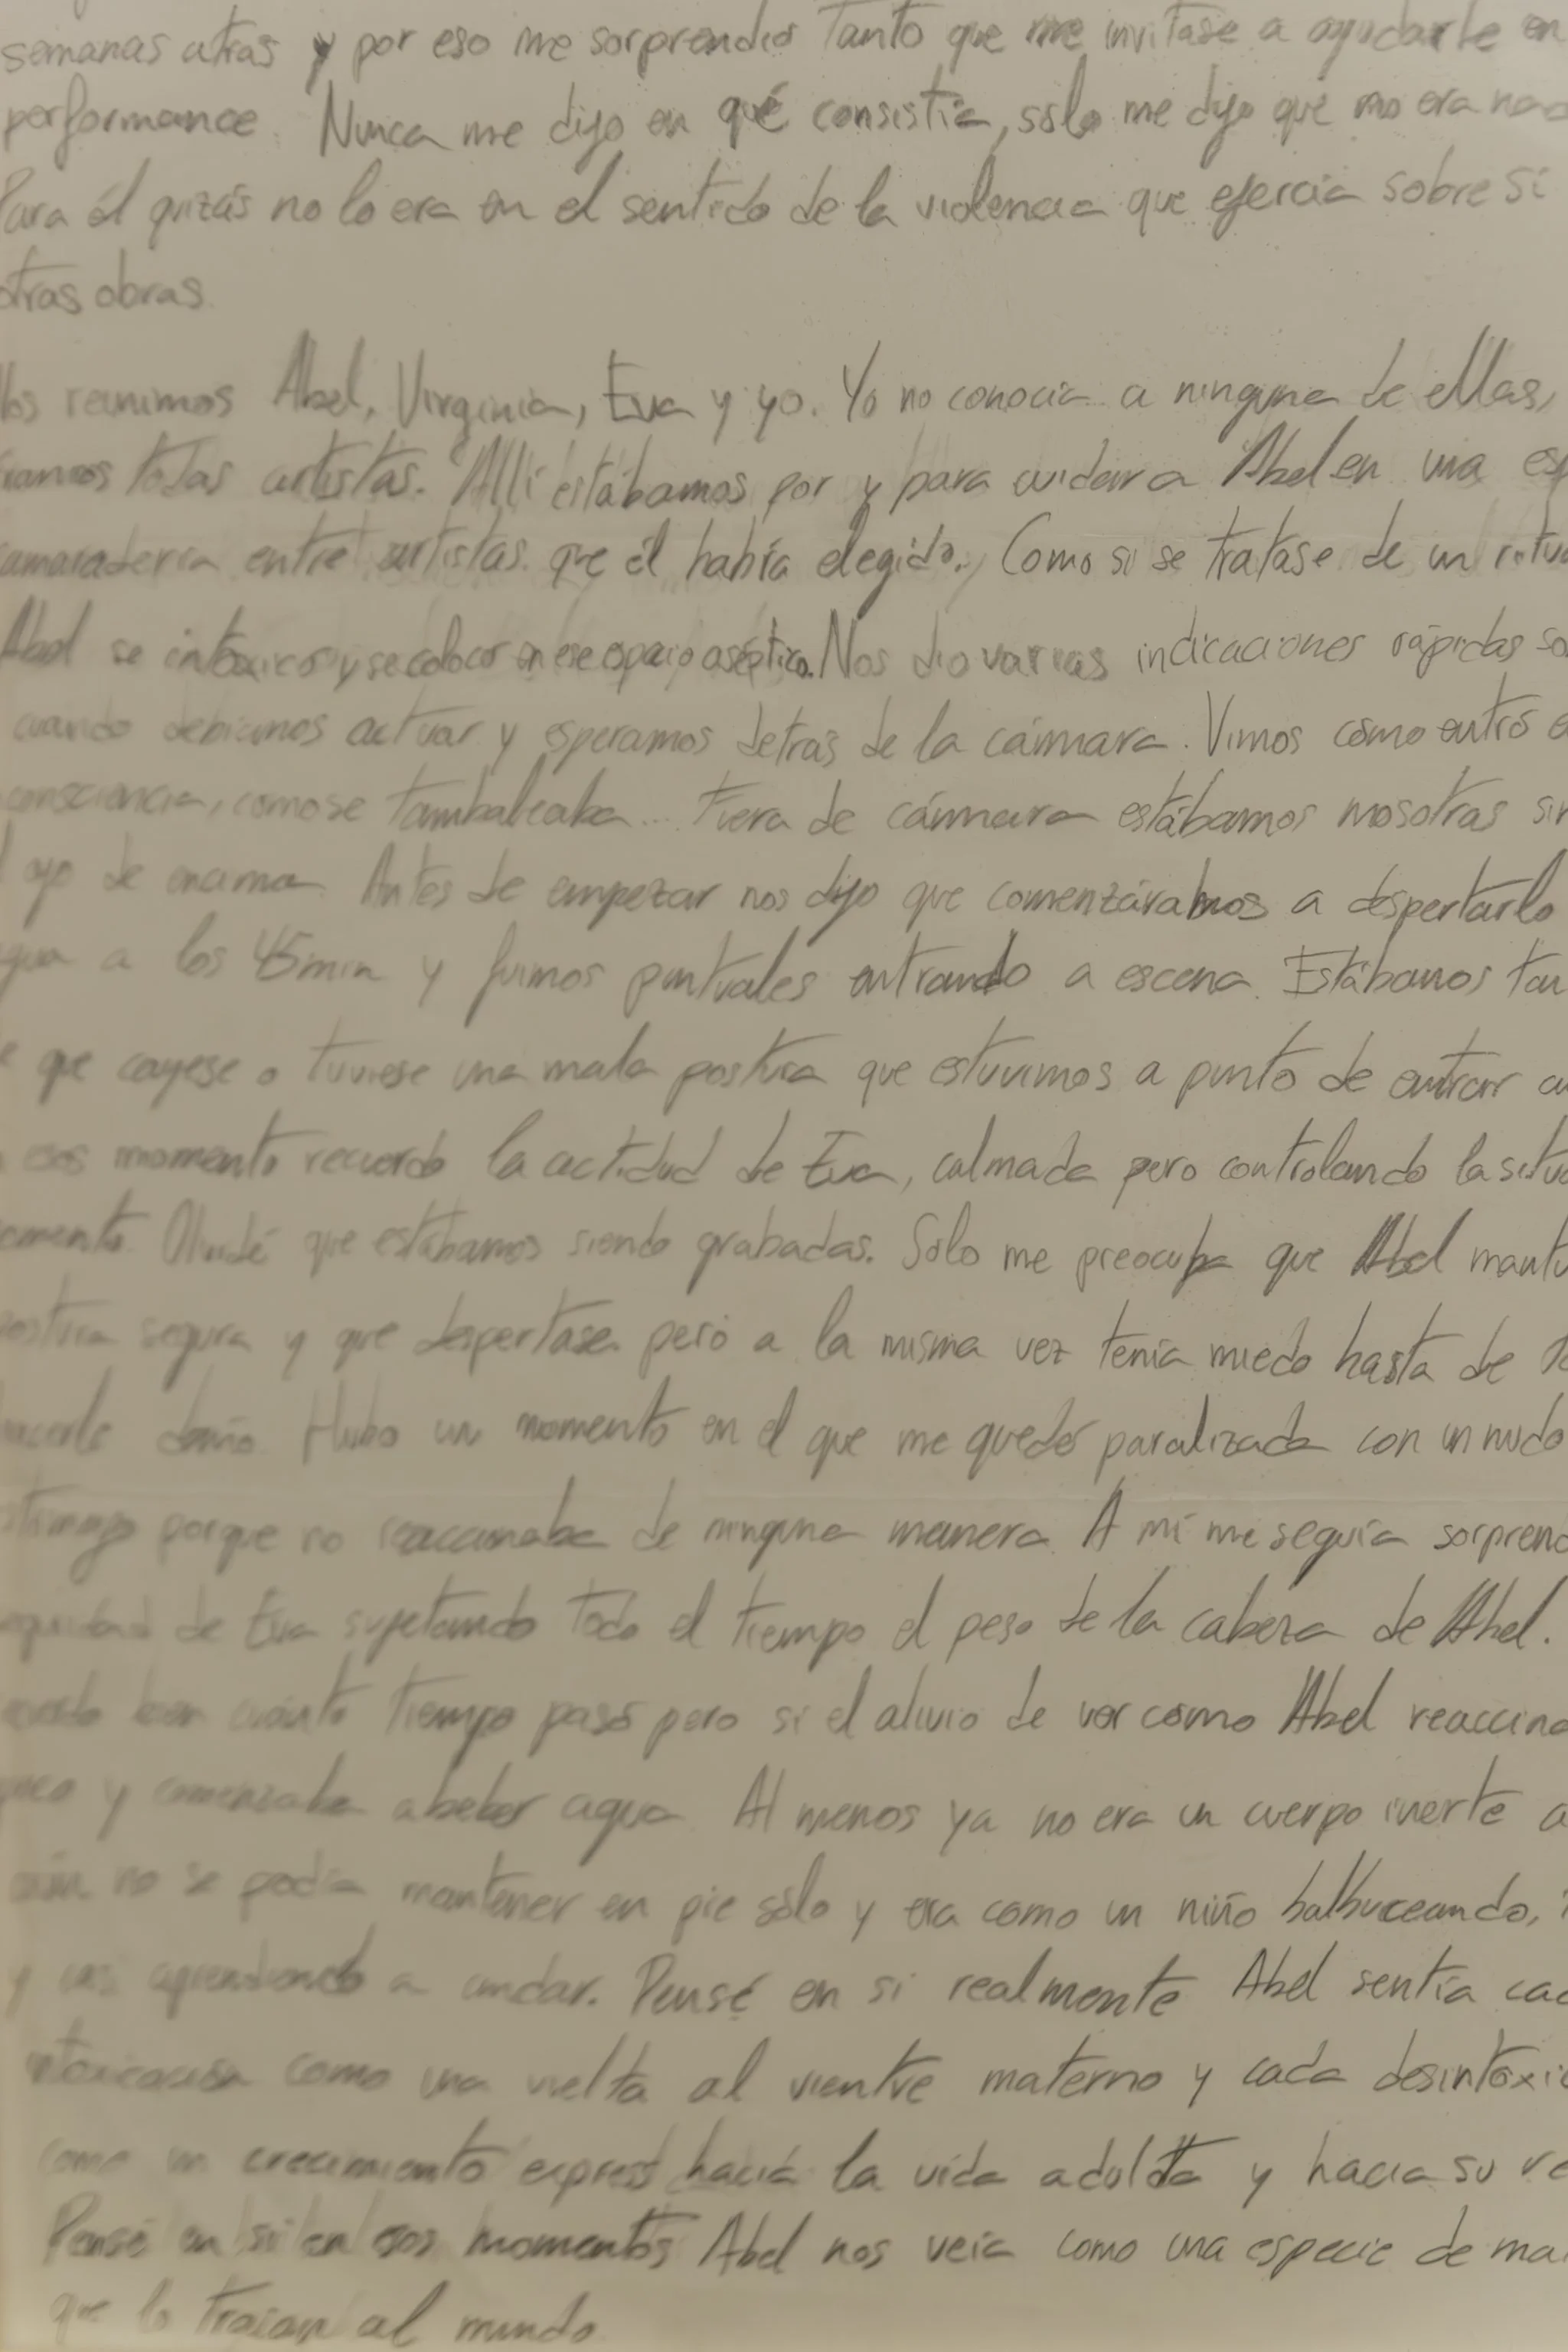 semanas atras y por eso me sorprendió tanto que me invitase a ayudarle en
performance. Nunca me dijo en qué consistía, sólo me dijo que no era
Para él quizás no lo era en el sentido de la violencia que ejercía sobre sí
otras obras.
Nos reunimos Abel, Virginia, Eva y yo. Yo no conocía a ninguna de ellas,
todas artistas. Allí estábamos por y para cuidar a Abel en una
camaradería entre artistas que él había elegido. Como si se tratase de un
Abel se intoxicó y se colocó en ese espacio aséptico. Nos dio varias indicaciones rápidas
cuando debíamos actuar y esperamos detrás de la cámara. Vimos cómo entró
consciencia, como se tambaleaba... Fuera de cámara estábamos nosotras
ojo de encima. Antes de empezar nos dijo que comenzáramos a despertarlo
a los 45min y fuimos puntuales entrando a escena. Estábamos
que cayese o tuviese una mala postura que estuvimos a punto de entrar
esos momento recuerdo la actidud de Eva, calmada pero controlando la
Olvidé que estábamos siendo grabadas. Sólo me preocupa que Abel
segura y que despertase pero a la misma vez tenía miedo hasta de
hacerle daño. Hubo un momento en el que me quedé paralizada con un nudo
porque no reaccionaba de ninguna manera. A mí me seguía
de Eva sujetando todo el tiempo el peso de la cabeza de Abel.
bien cuánto tiempo pasó pero sí el alivio de ver como Abel
y comenzaba a beber agua. Al menos ya no era un cuerpo inerte
aún no se podía mantener en pie sólo y era como un niño balbuceando,
y aprendiendo a andar. Pensé en si realmente Abel sentía
intoxicación como una vuelta al vientre materno y cada
como un crecimiento express hacia la vida adulta y hacia su
Pensé en si en esos momentos Abel nos veía como una especie de
que lo traían al mundo